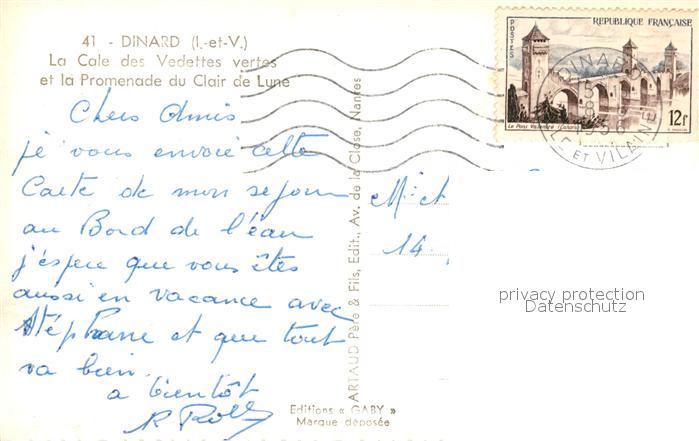 41 - DINARD (I.-et-V.)
La Cale des Vedettes vertes
et la Promenade du Clair de Lune
Chers Amis
je vous envoie cette
Carte de mon sejour
au Bord de l'eau
j'espere que vous êtes
aussi en vacance avec
Stéphane et que tout
va bien.
a bientôt
R Rolly
ARTAUD Père & Fils, Edit., Av. de la Close, Nantes
Editions « GABY »
Marque déposée
REPUBLIQUE FRANÇAISE
POSTES
Le Pont Valentré (Cahors)
12f
DINARD
ILLE ET VILAINE
14
privacy protection
Datenschutz